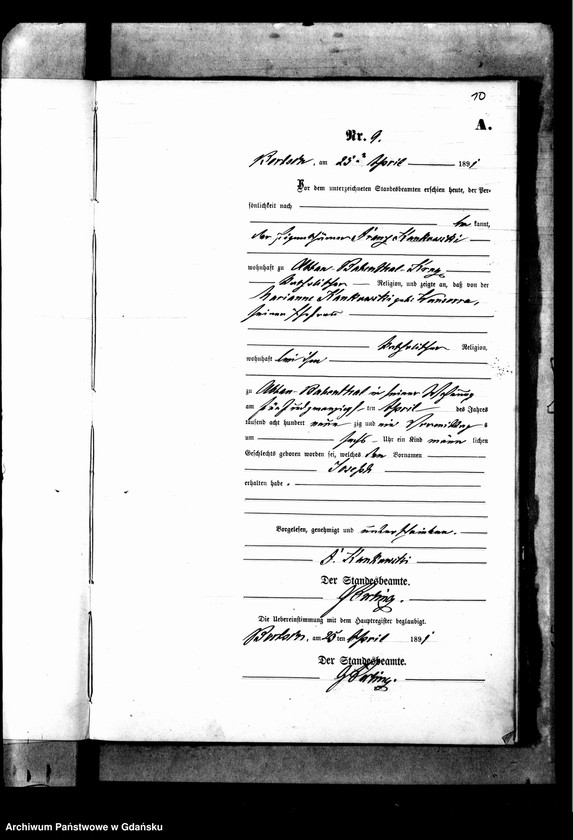 10
A.
Nr. 9.
am 25ten April 1891
Vor dem unterzeichneten Standesbeamten erschien heute, der Per-
sönlichkeit nach
kannt,
der Eigenthümer Franz Kankowski
wohnhaft zu Abbau
katholischer Religion, und zeigte an, daß von der
Marianne Kankowski geb.
seiner Ehefrau
katholischer Religion,
wohnhaft bei ihm
zu Abbau in seiner Wohnung
am fünfundzwanzigsten April des Jahres
tausend acht hundert neunzig und ein Vormittags
um sechs Uhr ein Kind männlichen
Geschlechts geboren worden sei, welches den Vornamen
Joseph
erhalten habe.
Vorgelesen, genehmigt und unterschrieben.
F. Kankowski
Der Standesbeamte.
Die Uebereinstimmung mit dem Hauptregister beglaubigt.
am 25ten April 1891
Der Standesbeamte.
Archiwum Państwowe w Gdańsku